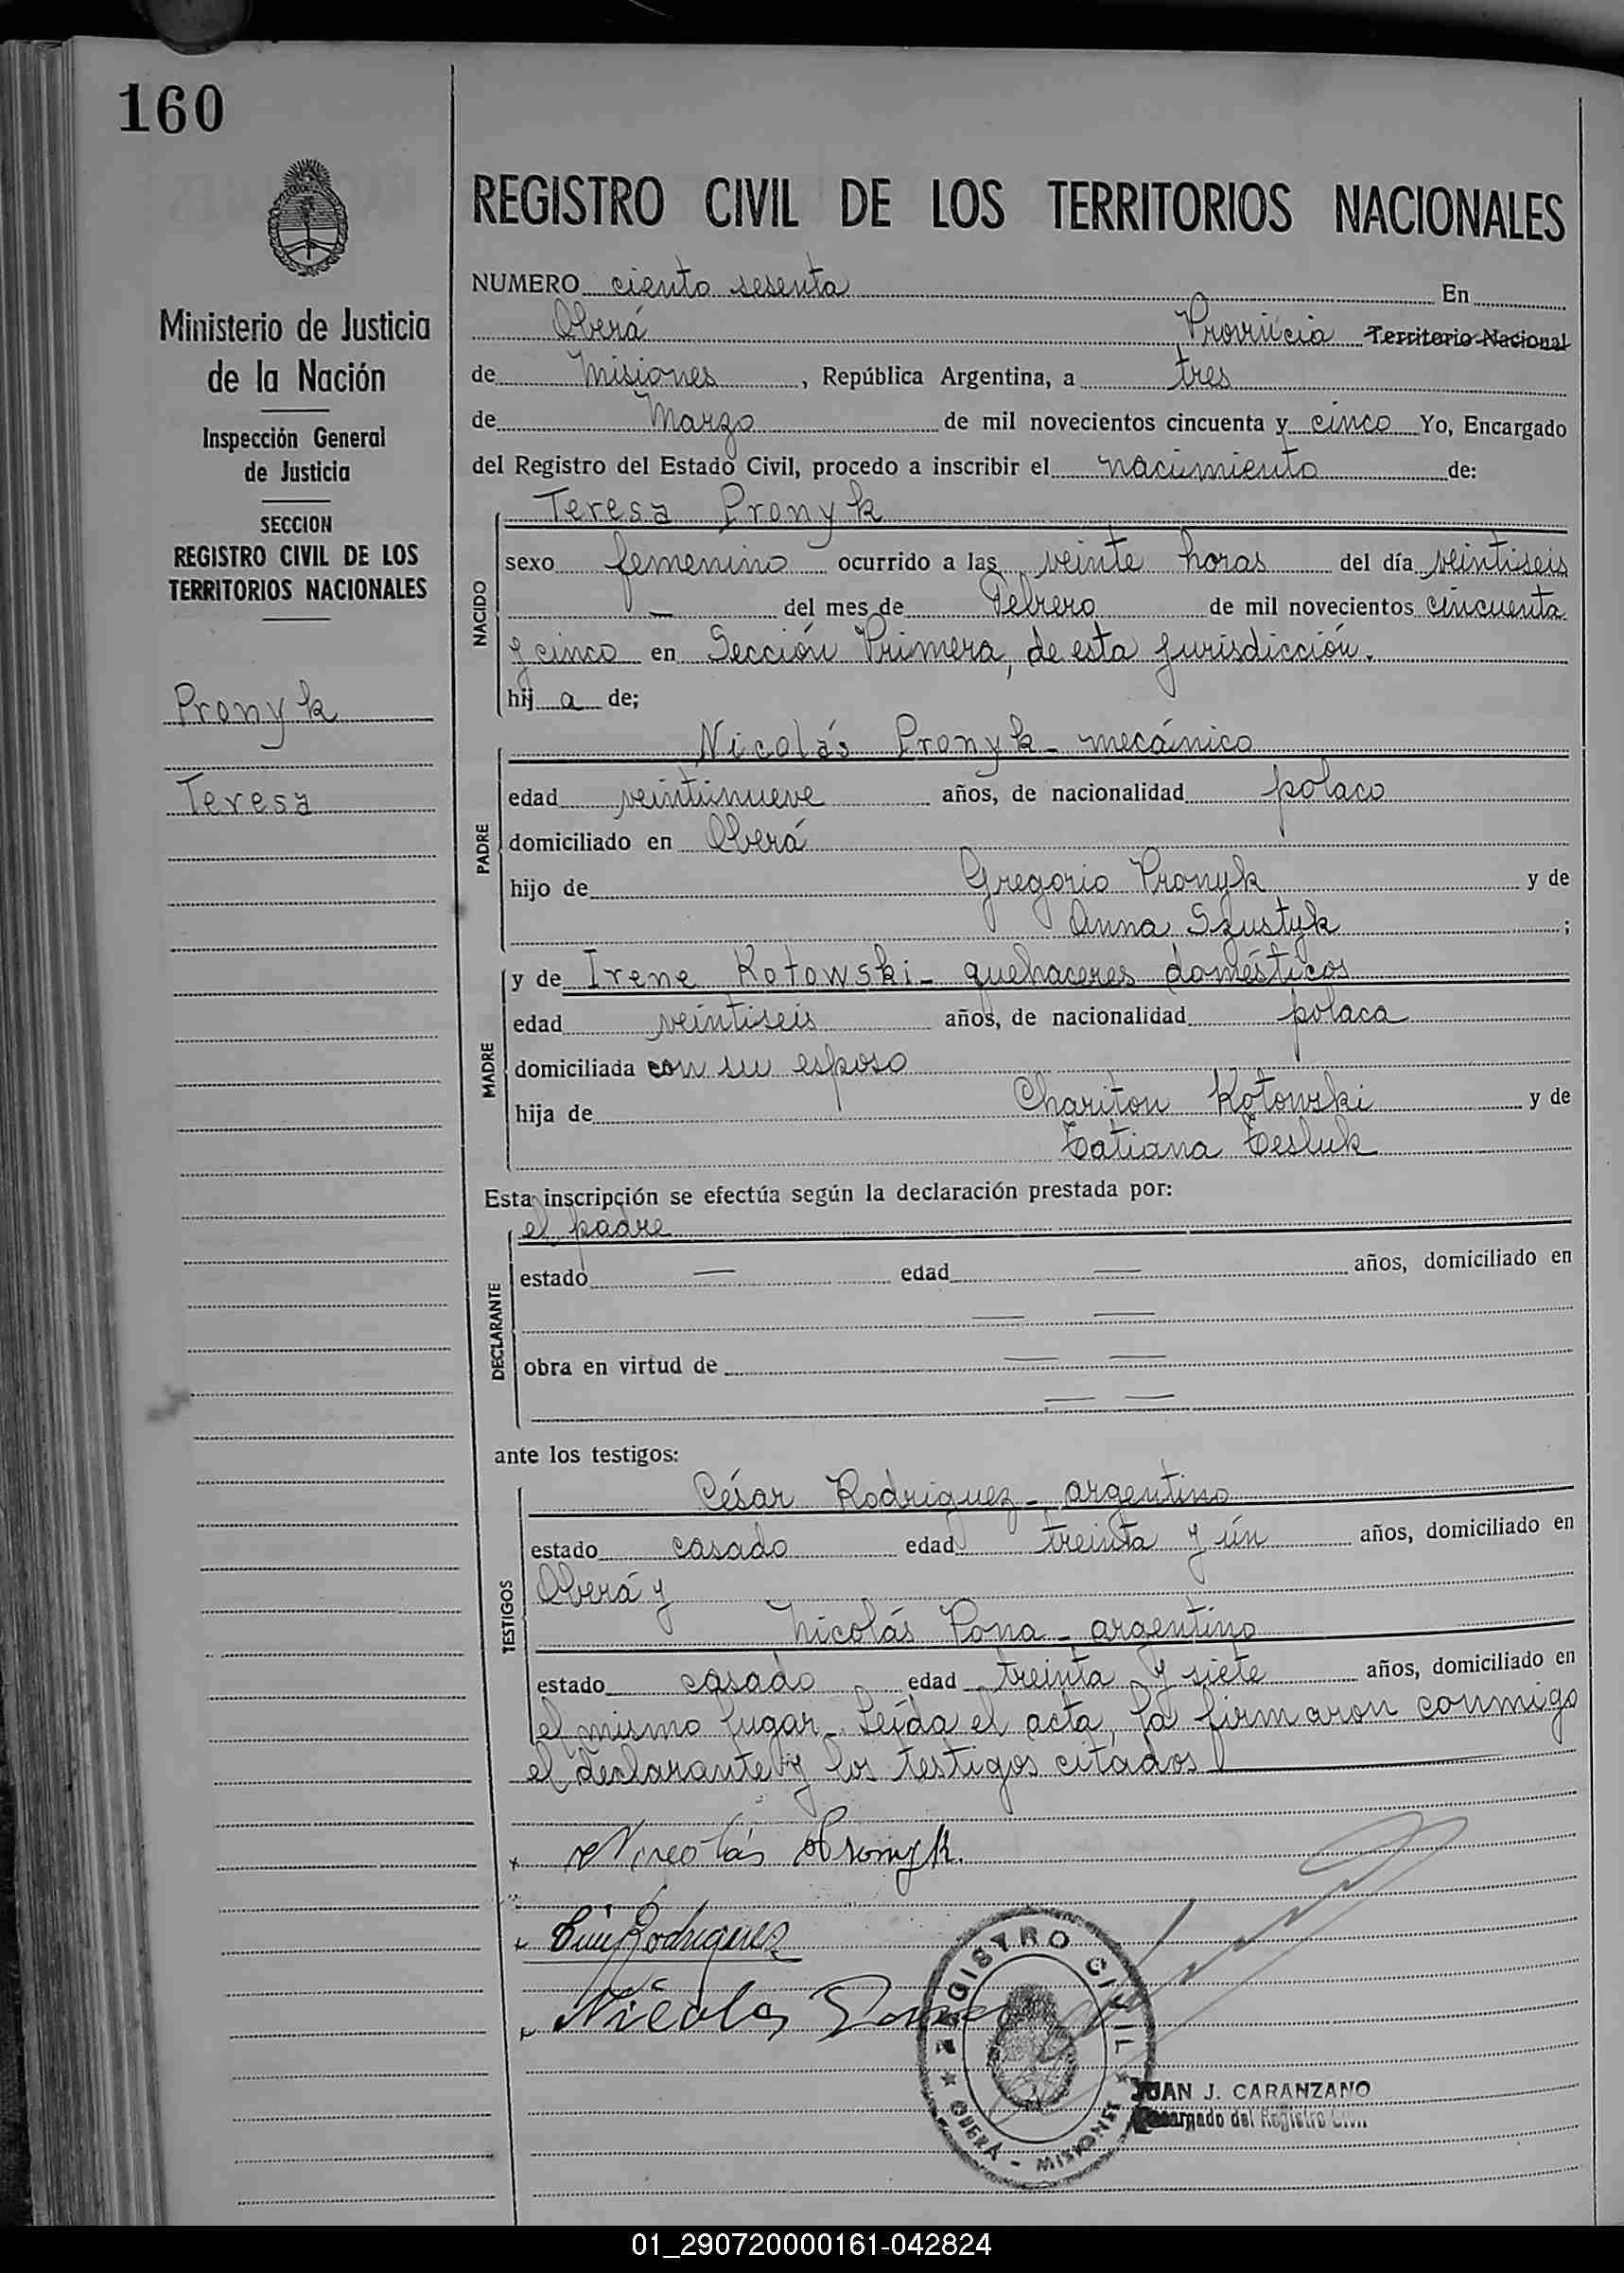 160
REGISTRO CIVIL DE LOS TERRITORIOS NACIONALES
Ministerio de Justicia
de la Nación
Inspección General
de Justicia
SECCION
REGISTRO CIVIL DE LOS
TERRITORIOS NACIONALES
Pronyk
Teresa
NUMERO ciento sesenta En
Oberá Provincia Territorio Nacional
de Misiones, República Argentina, a tres
de Marzo de mil novecientos cincuenta y cinco Yo, Encargado
del Registro del Estado Civil, procedo a inscribir el nacimiento de:
NACIDO
Teresa Pronyk
sexo femenino ocurrido a las veinte horas del día veintiseis
— del mes de Febrero de mil novecientos cincuenta
y cinco en Sección Primera, de esta jurisdicción.
hij a de;
PADRE
Nicolás Pronyk - mecánico
edad veintinueve años, de nacionalidad polaco
domiciliado en Oberá
hijo de Gregorio Pronyk y de
Anna Szustyk ;
MADRE
y de Irene Kotowski - quehaceres domésticos
edad veintiseis años, de nacionalidad polaca
domiciliada con su esposo
hija de Chariton Kotowski y de
Tatiana Tesluk
Esta inscripción se efectúa según la declaración prestada por:
DECLARANTE
el padre
estado — edad — años, domiciliado en
— —
obra en virtud de — —
— —
ante los testigos:
TESTIGOS
César Rodriguez - argentino
estado casado edad treinta y ún años, domiciliado en
Oberá y
Nicolás Pona - argentino
estado casado edad treinta y siete años, domiciliado en
el mismo lugar - Leída el acta, la firmaron conmigo
el declarante y los testigos citados
Nicolás Pronyk.
Rodriguez
Nicolas
REGISTRO CIVIL
OBERÁ - MISIONES
JUAN J. CARANZANO
Encargado del Registro Civil
01_290720000161-042824